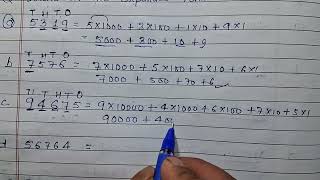 T H T O
a 5319 = 5×1000 + 3×100 + 1×10 + 9×1
= 5000 + 300 + 10 + 9
T H T O
b 7576 = 7×1000 + 5×100 + 7×10 + 6×1
7000 + 500 + 70 + 6
T T H T O
c. 94675 = 9×10000 + 4×1000 + 6×100 + 7×10 + 5×1
90000 + 400
d 56764 =